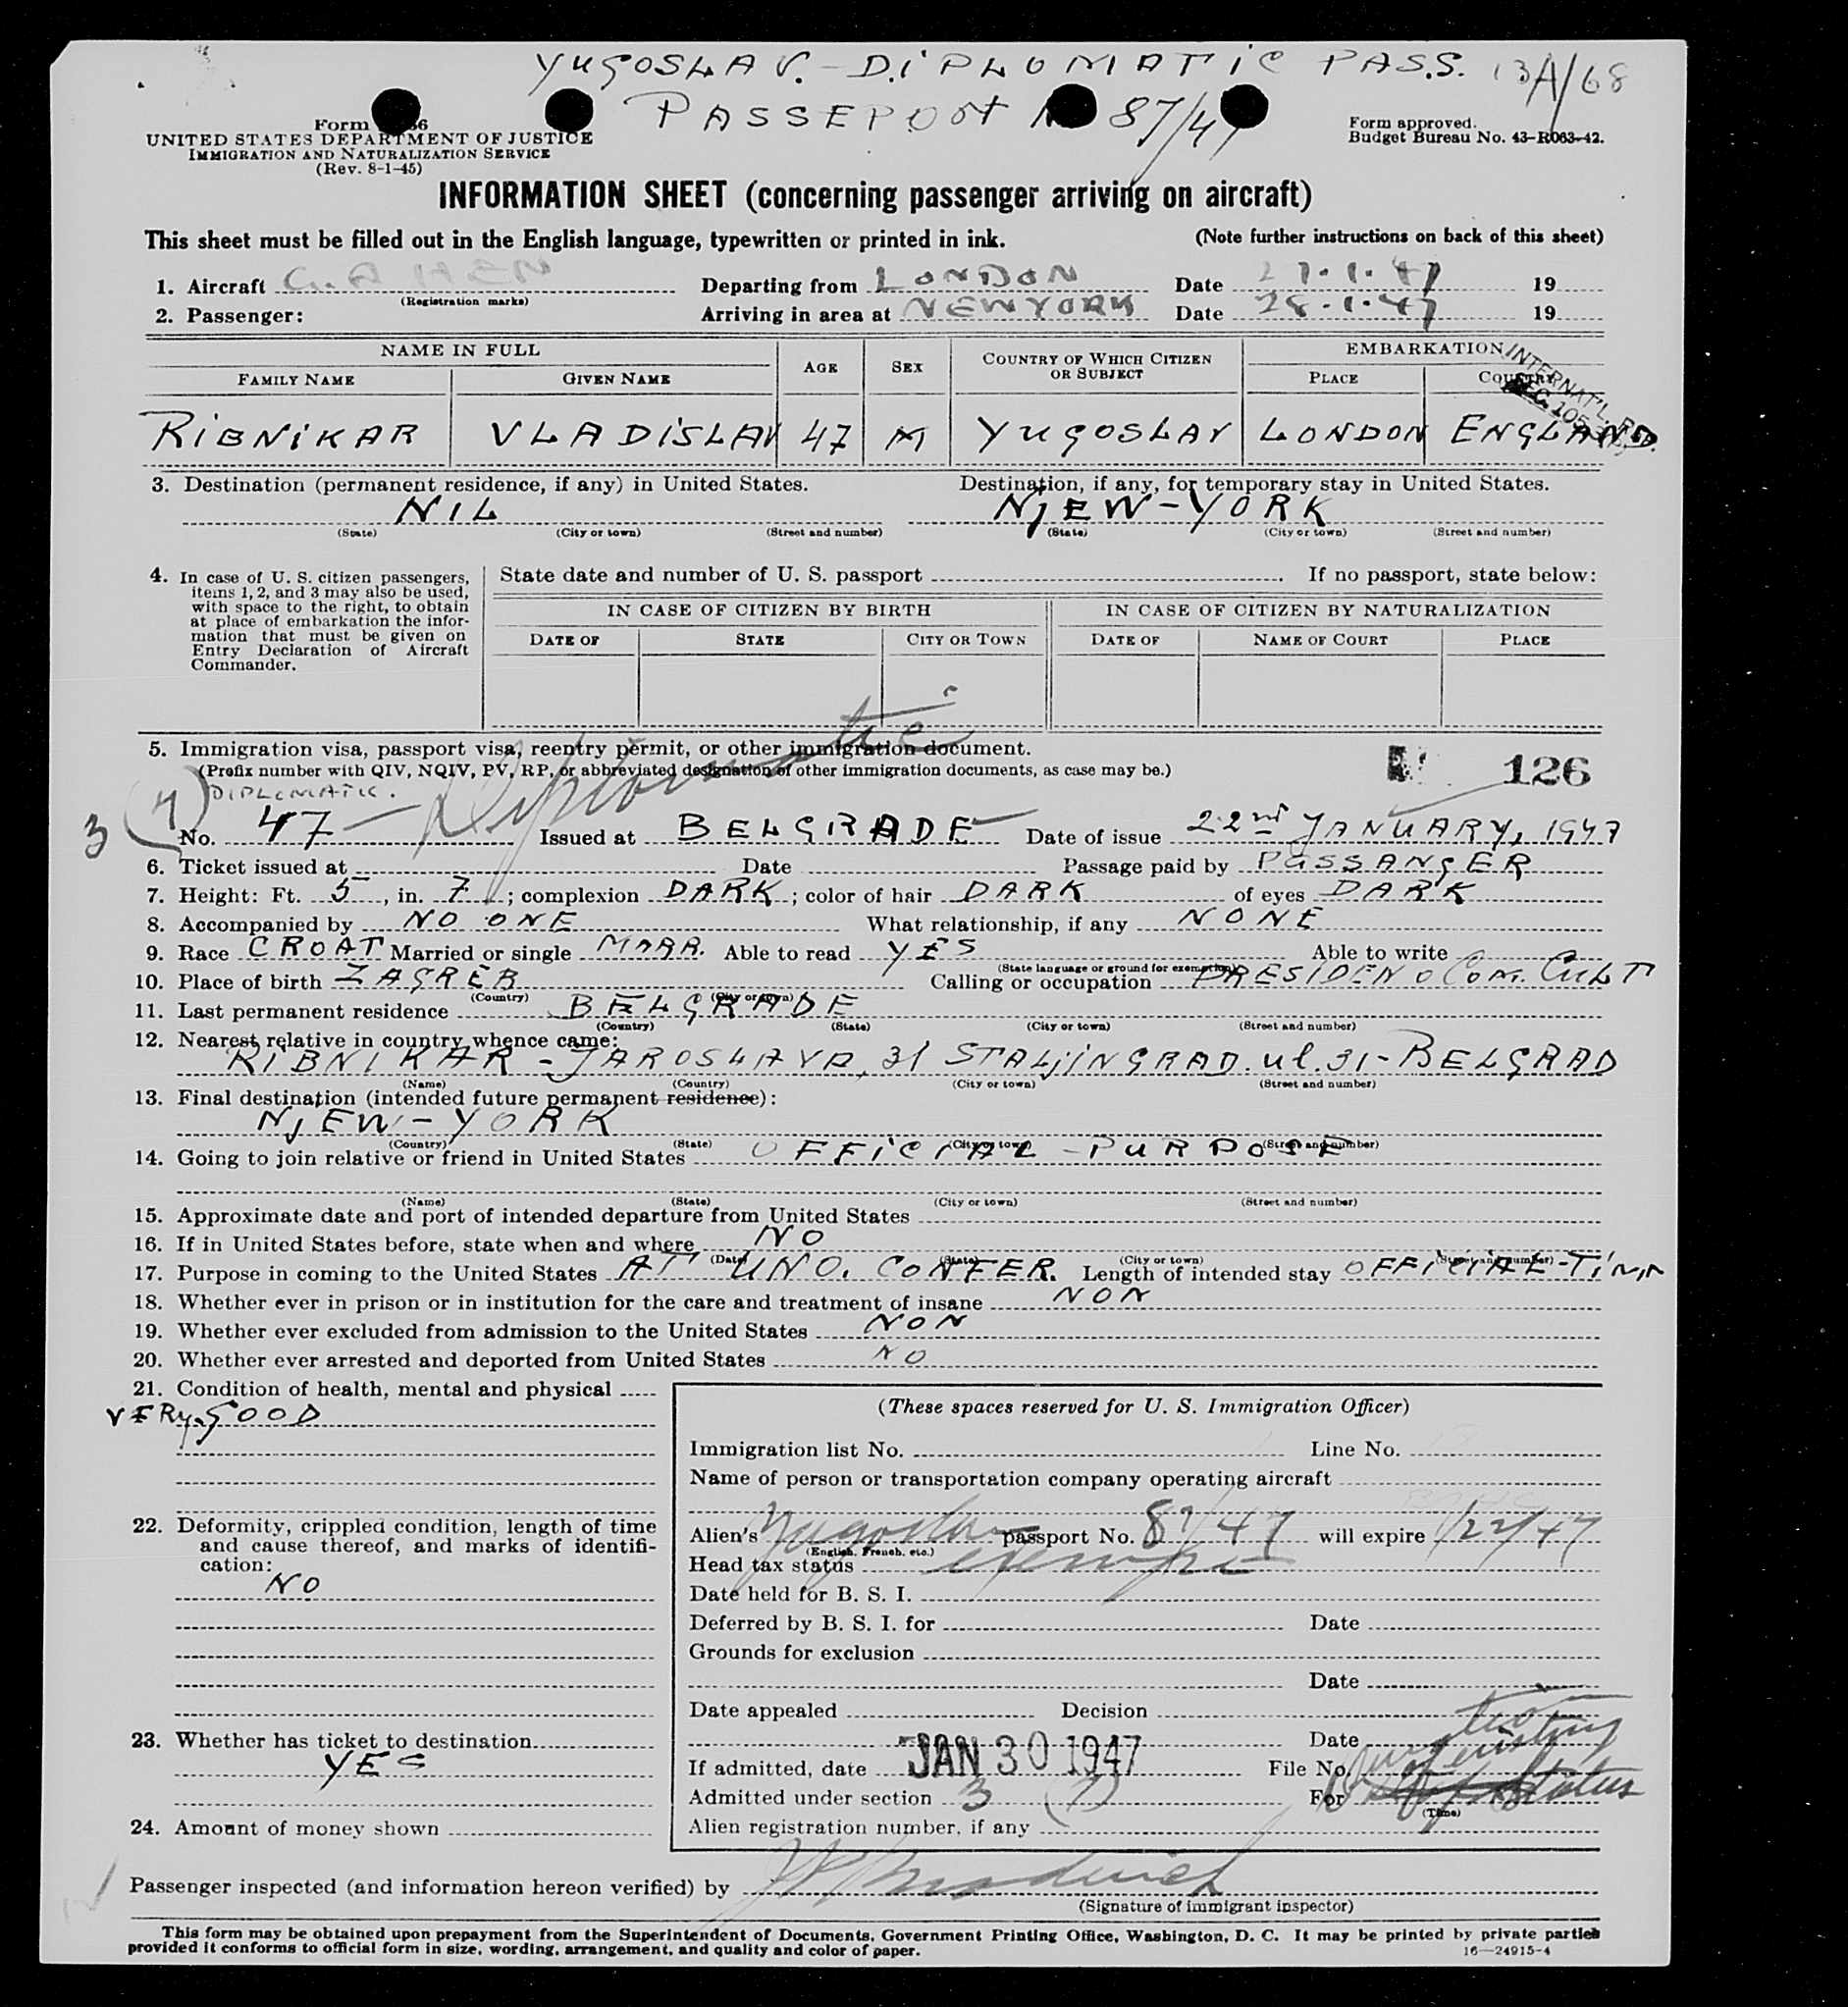 YUGOSLAV. - DiPLOMATiC PASS. 13A/68
PASSEPORT 87/47
Form
UNITED STATES DEPARTMENT OF JUSTICE
IMMIGRATION AND NATURALIZATION SERVICE
(Rev. 8-1-45)
Form approved.
Budget Bureau No. 43-R063-42.
INFORMATION SHEET (concerning passenger arriving on aircraft)
This sheet must be filled out in the English language, typewritten or printed in ink. (Note further instructions on back of this sheet)
1. Aircraft G.A HEN Departing from LONDON Date 27.1.47 19
(Registration marks)
2. Passenger: Arriving in area at NEWYORK Date 28.1.47 19
NAME IN FULL AGE SEX COUNTRY OF WHICH CITIZEN OR SUBJECT EMBARKATION
FAMILY NAME GIVEN NAME PLACE COUNTRY
INTERNAT'L
RiBNiKAR VLADiSLAV 47 M YUGOSLAV LONDON ENGLAND.
3. Destination (permanent residence, if any) in United States. Destination, if any, for temporary stay in United States.
NIL NjEW-YORK
(State) (City or town) (Street and number) (State) (City or town) (Street and number)
4. In case of U. S. citizen passengers, items 1, 2, and 3 may also be used, with space to the right, to obtain at place of embarkation the information that must be given on Entry Declaration of Aircraft Commander.
State date and number of U. S. passport . If no passport, state below:
IN CASE OF CITIZEN BY BIRTH IN CASE OF CITIZEN BY NATURALIZATION
DATE OF STATE CITY OR TOWN DATE OF NAME OF COURT PLACE
5. Immigration visa, passport visa, reentry permit, or other immigration document.
(Prefix number with QIV, NQIV, PV, RP, or abbreviated designation of other immigration documents, as case may be.) 126
3 (7) DIPLOMATIC. Diplomatic
No. 47 Issued at BELGRADE Date of issue 22nd JANUARY, 1947
6. Ticket issued at Date Passage paid by PASSANGER
7. Height: Ft. 5, in. 7; complexion DARK; color of hair DARK of eyes DARK
8. Accompanied by NO ONE What relationship, if any NONE
9. Race CROAT Married or single MARR. Able to read YES Able to write
(State language or ground for exemption)
10. Place of birth ZAGREB Calling or occupation PRESIDEN o COM. CULT
(Country) (City or town)
11. Last permanent residence BELGRADE
(Country) (State) (City or town) (Street and number)
12. Nearest relative in country whence came:
RIBNIKAR - JAROSLAVA, 31 STALjiNGRAD. ul. 31 - BELGRAD
(Name) (Country) (City or town) (Street and number)
13. Final destination (intended future permanent residence):
NjEW-YORK
(Country) (State) (City or town) (Street and number)
14. Going to join relative or friend in United States OFFiCIAL - PURPOSE
(Name) (State) (City or town) (Street and number)
15. Approximate date and port of intended departure from United States
16. If in United States before, state when and where NO
(Date) (State) (City or town) (Street and number)
17. Purpose in coming to the United States AT UNO. CONFER. Length of intended stay OFFiCiAL-
18. Whether ever in prison or in institution for the care and treatment of insane NON
19. Whether ever excluded from admission to the United States NON
20. Whether ever arrested and deported from United States NO
21. Condition of health, mental and physical
VERY.GOOD
22. Deformity, crippled condition, length of time and cause thereof, and marks of identification:
NO
23. Whether has ticket to destination
YES
24. Amount of money shown
(These spaces reserved for U. S. Immigration Officer)
Immigration list No. Line No.
Name of person or transportation company operating aircraft
Alien's Yugoslav passport No. 87/47 will expire 1/22/47
(English, French, etc.)
Head tax status exempt
Date held for B. S. I.
Deferred by B. S. I. for Date
Grounds for exclusion
Date
Date appealed Decision
Date
If admitted, date JAN 30 1947 File No.
Admitted under section 3 (7) For Status
(Time)
Alien registration number, if any
Passenger inspected (and information hereon verified) by
(Signature of immigrant inspector)
This form may be obtained upon prepayment from the Superintendent of Documents, Government Printing Office, Washington, D. C. It may be printed by private parties
provided it conforms to official form in size, wording, arrangement, and quality and color of paper. 16—24915-4